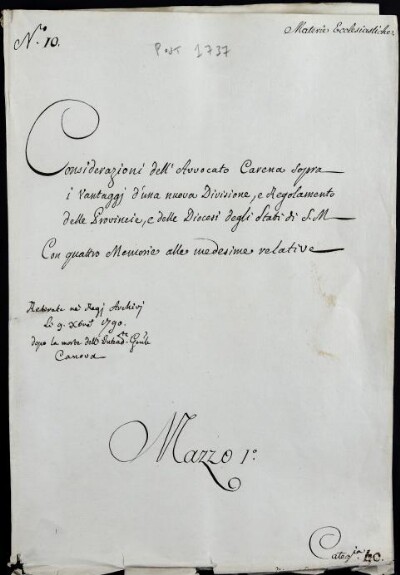 N.º 10.
Materie Ecclesiastiche
Post 1737
Considerazioni dell' Avvocato Carena sopra
i vantaggi d'una nuova Divisione, e Regolamento
delle Provincie, e delle Diocesi degli Stati di S. M.
Con quattro Memorie alle medesime relative
Ritirate ne' Regj Archivj
li 9. Xbre 1790.
dopo la morte dell' Intend.te Gen.le
Canova
Mazzo 1º
Categ.ia 40.